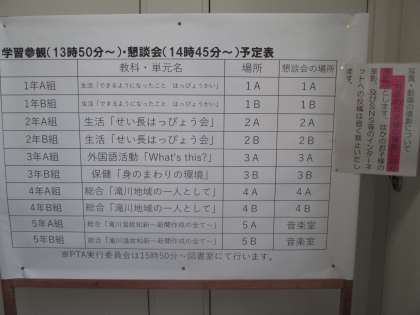 学習参観(13時50分～)・懇談会(14時45分～)予定表
教科・単元名 場所 懇談会の場所
1年A組 生活「できるようになったこと はっぴょうかい」 1A 1A
1年B組 生活「できるようになったこと はっぴょうかい」 1B 1B
2年A組 生活「せい長はっぴょう会」 2A 2A
2年B組 生活「せい長はっぴょう会」 2B 2B
3年A組 外国語活動「What's this?」 3A 3A
3年B組 保健「身のまわりの環境」 3B 3B
4年A組 総合「滝川地域の一人として」 4A 4A
4年B組 総合「滝川地域の一人として」 4B 4B
5年A組 総合「滝川温故知新～新聞作成の全て～」 5A 音楽室
5年B組 総合「滝川温故知新～新聞作成の全て～」 5B 音楽室
※PTA実行委員会は15時50分～図書室にて行います。
写真・動画の撮影について
とします。ほかのお子様の
撮影、及びSNS等のインターネ
ットへの投稿は固く禁止いたし
ます。